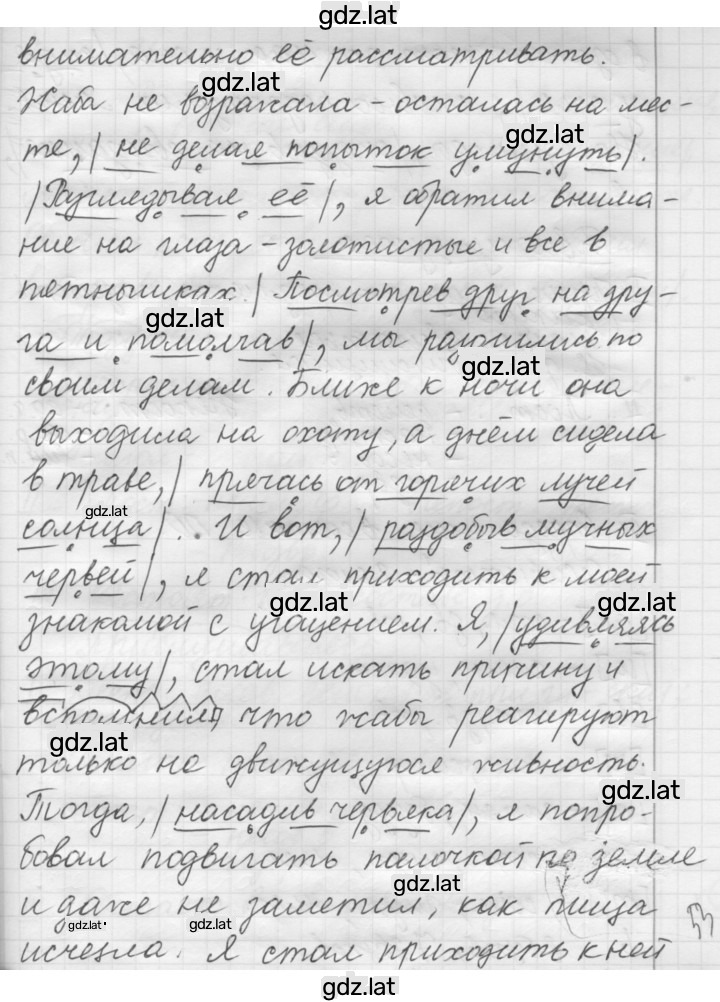 gdz.lat
внимательно её рассматривать.
gdz.lat
Жаба не возражала - осталась на мес-
gdz.lat
те, | не делая попыток улизнуть |.
| Разглядывая её |, я обратил внима-
ние на глаза - золотистые и все в
пятнышках. | Посмотрев друг на дру-
gdz.lat
га и помолчав |, мы разошлись по
gdz.lat
своим делам. Ближе к ночи она
выходила на охоту, а днём сидела
в траве, | прячась от горячих лучей
gdz.lat
солнца |. И вот, | раздобыв мучных
червей |, я стал приходить к моей
gdz.lat gdz.lat
знакомой с угощением. Я, | удивляясь
этому |, стал искать причину и
вспомнил, что жабы реагируют
gdz.lat
только на движущуюся живность.
gdz.lat
Тогда, | насадив червяка |, я попро-
бовал подвигать палочкой по земле
gdz.lat
и даже не заметил, как пища
gdz.lat gdz.lat
исчезла. Я стал приходить к ней
gdz.lat